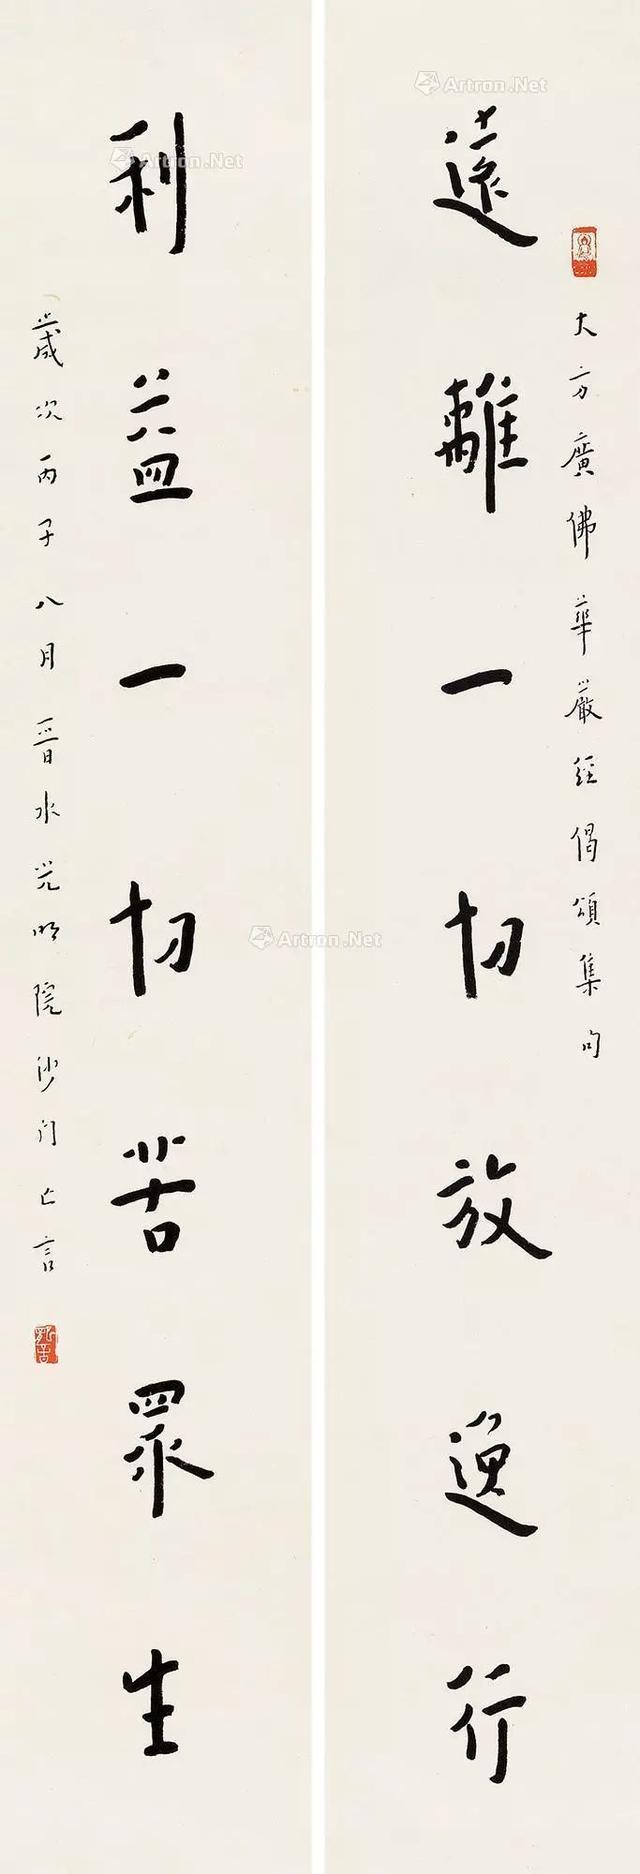 大方廣佛華嚴經偈頌集句
遠離一切放逸行
利益一切苦眾生
歲次丙子八月晉水光明院沙門亡言
Artron.Net
Artron.Net
Artron.Net